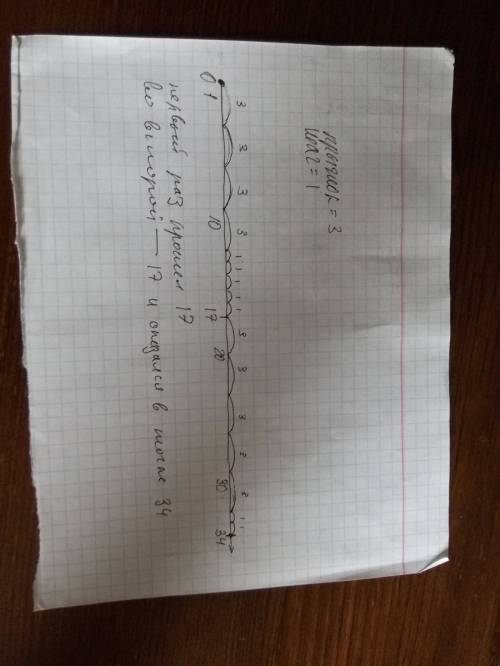 прыжок = 3
шаг = 1
3 3 3 3 1 1 1 1 1 3 3 3 2 2 1 1
0 1 10 17 20 30 34
первый раз прошел 17
во второй — 17 и оказался в точке 34